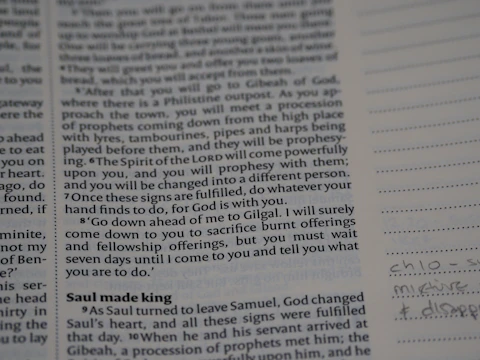 reach the great tree of Tabor. Three men going
up to worship God at Bethel will meet you there.
One will be carrying three young goats, another
three loaves of bread, and another a skin of wine.
4 They will greet you and offer you two loaves of
bread, which you will accept from them.
5 'After that you will go to Gibeah of God,
where there is a Philistine outpost. As you ap-
proach the town, you will meet a procession
of prophets coming down from the high place
with lyres, tambourines, pipes and harps being
played before them, and they will be prophesy-
ing. 6 The Spirit of the LORD will come powerfully
upon you, and you will prophesy with them;
and you will be changed into a different person.
7 Once these signs are fulfilled, do whatever your
hand finds to do, for God is with you.
8 'Go down ahead of me to Gilgal. I will surely
come down to you to sacrifice burnt offerings
and fellowship offerings, but you must wait
seven days until I come to you and tell you what
you are to do.'
Saul made king
9 As Saul turned to leave Samuel, God changed
Saul's heart, and all these signs were fulfilled
that day. 10 When he and his servant arrived at
Gibeah, a procession of prophets met him; the
upon him, and he
to you
gateway
ere the
ahead
e to eat
you on
r heart.
ago, do
found.
rned, if
minite,
not my
of Ben-
e?'
his ser-
he head
hirty in
ing the
ou to lay